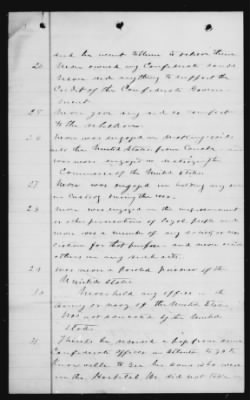 and he went to them to relieve them
24 Never owned any Confederate bonds
Never did anything to support the
Credit of the Confederate Govern-
ment
25 Never gave any aid or comfort
to the rebellion
26 Never was engaged in making raids
into the United States from Canada and
was never engaged in destroying the
Commerce of the United States
27 Never was engaged in holding any one
in custody during the war
28 Never was engaged in the imprisonment
or other persecution of Loyal people and
never was a member of any society or asso-
ciation for that purpose and never aided
others in any such acts
29 Was never a paroled prisoner of the
United States
30 Never held any office in the
Army or navy of the United States
Was not educated by the United
States
31 Thinks he received a pass from some
Confederate officer in Atlanta to go to
Knoxville to see his sons who were
in the Hospital He did not take an